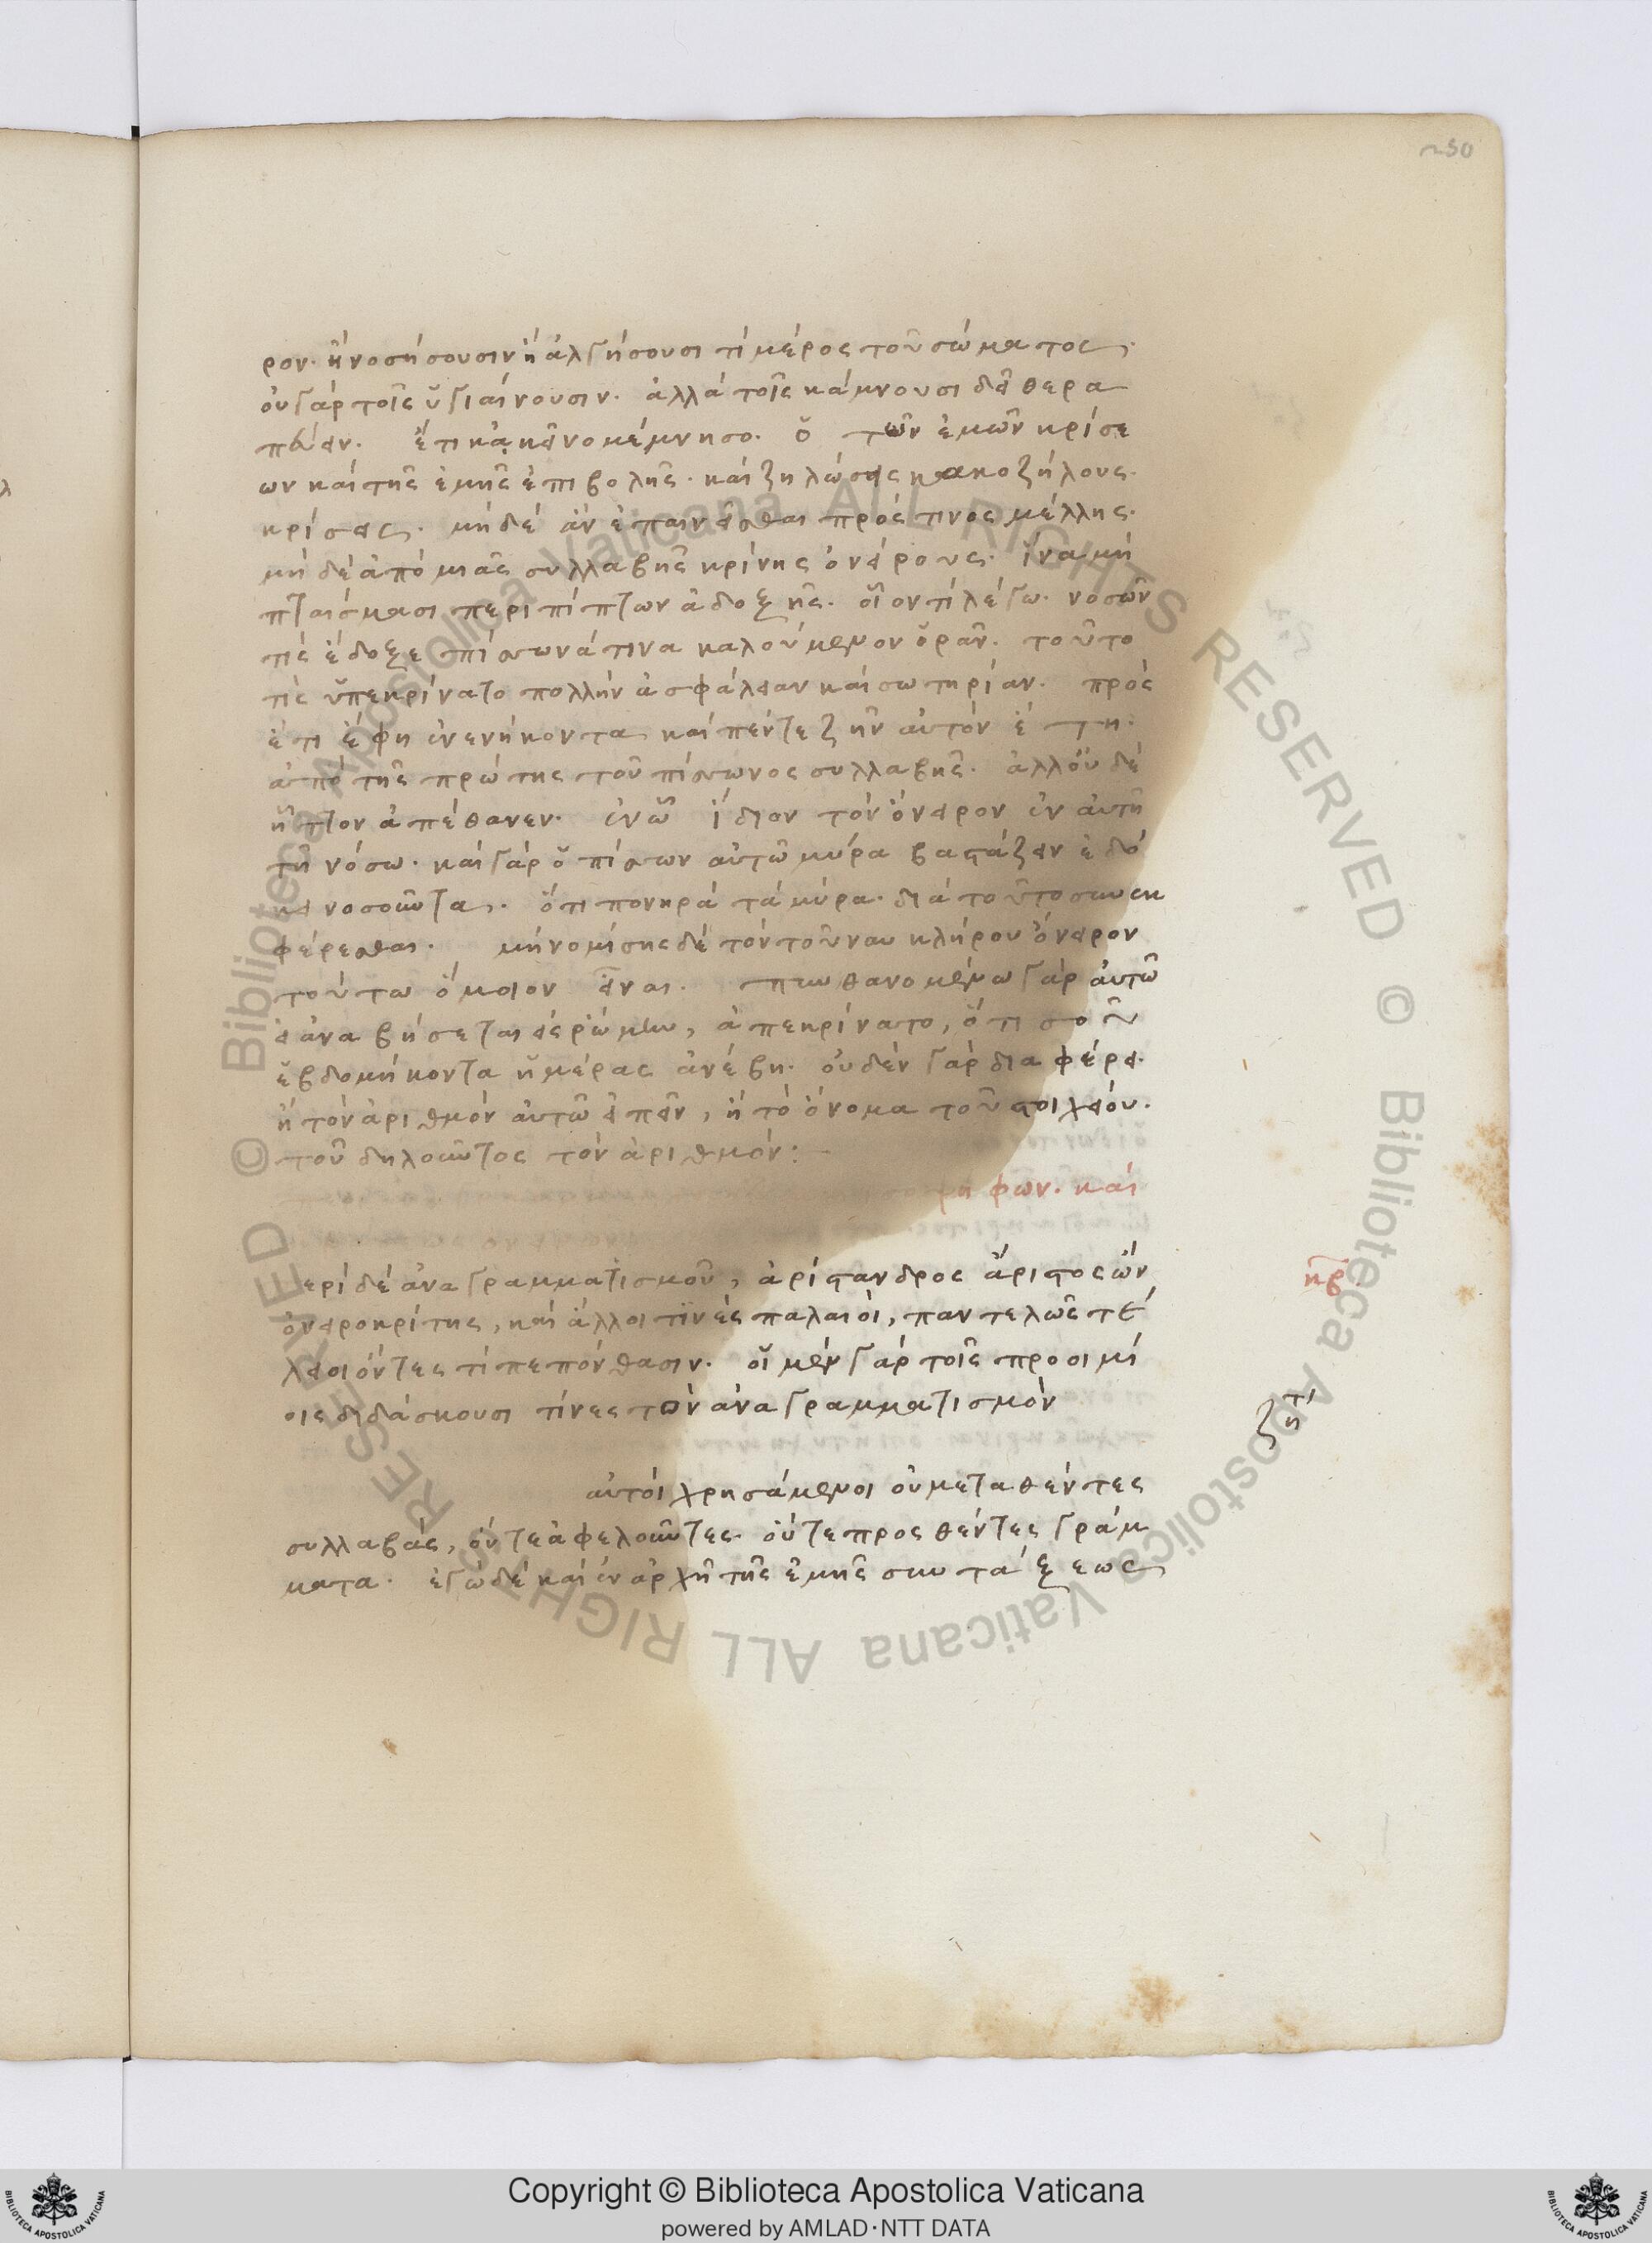 250
ρον· ἢ νοσήσουσιν ἢ ἀλγήσουσι τί μέρος τοῦ σώματος·
οὐ γὰρ τοῖς ὑγιαίνουσιν· ἀλλὰ τοῖς κάμνουσι δεῖ θερα
πειῶν. ἔτι κἀκεῖνο μέμνησο. ὁ τῶν ἐμῶν κρίσε
ων καὶ τῆς ἐμῆς ἐπιβολῆς· καὶ ζηλώσῃς κακοζήλους
κρίσεις. μηδὲ ἂν ἐπαινεῖσθαι πρός τινος μέλλῃς·
μηδὲ ἀπὸ μιᾶς συλλαβῆς κρίνῃς ὀνείρους· ἵνα μὴ
πταίσμασι περιπίπτων ἀδοξῇς. οἷόν τι λέγω. νοσῶν
τὶς ἔδοξε πίσωνά τινα καλούμενον ὁρᾶν. τοῦτό
τις ὑπεκρίνατο πολλὴν ἀσφάλειαν καὶ σωτηρίαν. πρὸς
ἔτι ἔφη ἐνενήκοντα καὶ πέντε ζῆν αὐτὸν ἔτη·
ἀπὸ τῆς πρώτης τοῦ πίσωνος συλλαβῆς. ἀλλ' οὐδὲ
ἧττον ἀπέθανεν. ἐν ᾧ ἴδιον τὸν ὄνειρον ἐν αὐτῇ
τῇ νόσω. καὶ γὰρ ὁ πίσων αὐτῶ μύρα βαστάζειν ἐδό
κει νοσοῦντα. ὅτι πονηρὰ τὰ μύρα· διὰ τοῦτο συνεκ
φέρεσθαι. μὴ νομίσῃς δὲ τὸν τοῦ ναυκλήρου ὄνειρον
τούτω ὅμοιον εἶναι. πυνθανομένω γὰρ αὐτῶ
εἰ ἀναβήσεται εἰς ῥώμην, ἀπεκρίνατο, ὅτι σο οῦ
ἑβδομήκοντα ἡμέρας ἀνέβη. οὐδὲν γὰρ διαφέρει·
ἢ τὸν ἀριθμὸν αὐτῶ εἰπεῖν, ἢ τὸ ὄνομα τοῦ στοιχείου·
τοῦ δηλοῦντος τὸν ἀριθμόν:
ψήφων. καὶ
κβ
ερὶ δὲ ἀναγραμματισμοῦ, ἀρίστανδρος ἄριστος ὢν
ὀνειροκρίτης, καὶ ἄλλοι τινὲς παλαιοί, παντελῶς τέ
λειοι ὄντες τί πεπόνθασιν. οἱ μὲν γὰρ τοῖς προοιμί
οις διδάσκουσι τίνες τὸν ἀναγραμματισμὸν
ζήτι
αὐτοὶ χρησάμενοι οὐ μεταθέντες
συλλαβάς, οὔτε ἀφελοῦντες. οὔτε προσθέντες γράμ
ματα. ἐγὼ δὲ καὶ ἐν ἀρχῆ τῆς ἐμῆς συντάξεως
Copyright © Biblioteca Apostolica Vaticana
powered by AMLAD·NTT DATA
© Biblioteca Apostolica Vaticana ALL RIGHTS RESERVED © Biblioteca Apostolica Vaticana ALL RIGHTS RESERVED